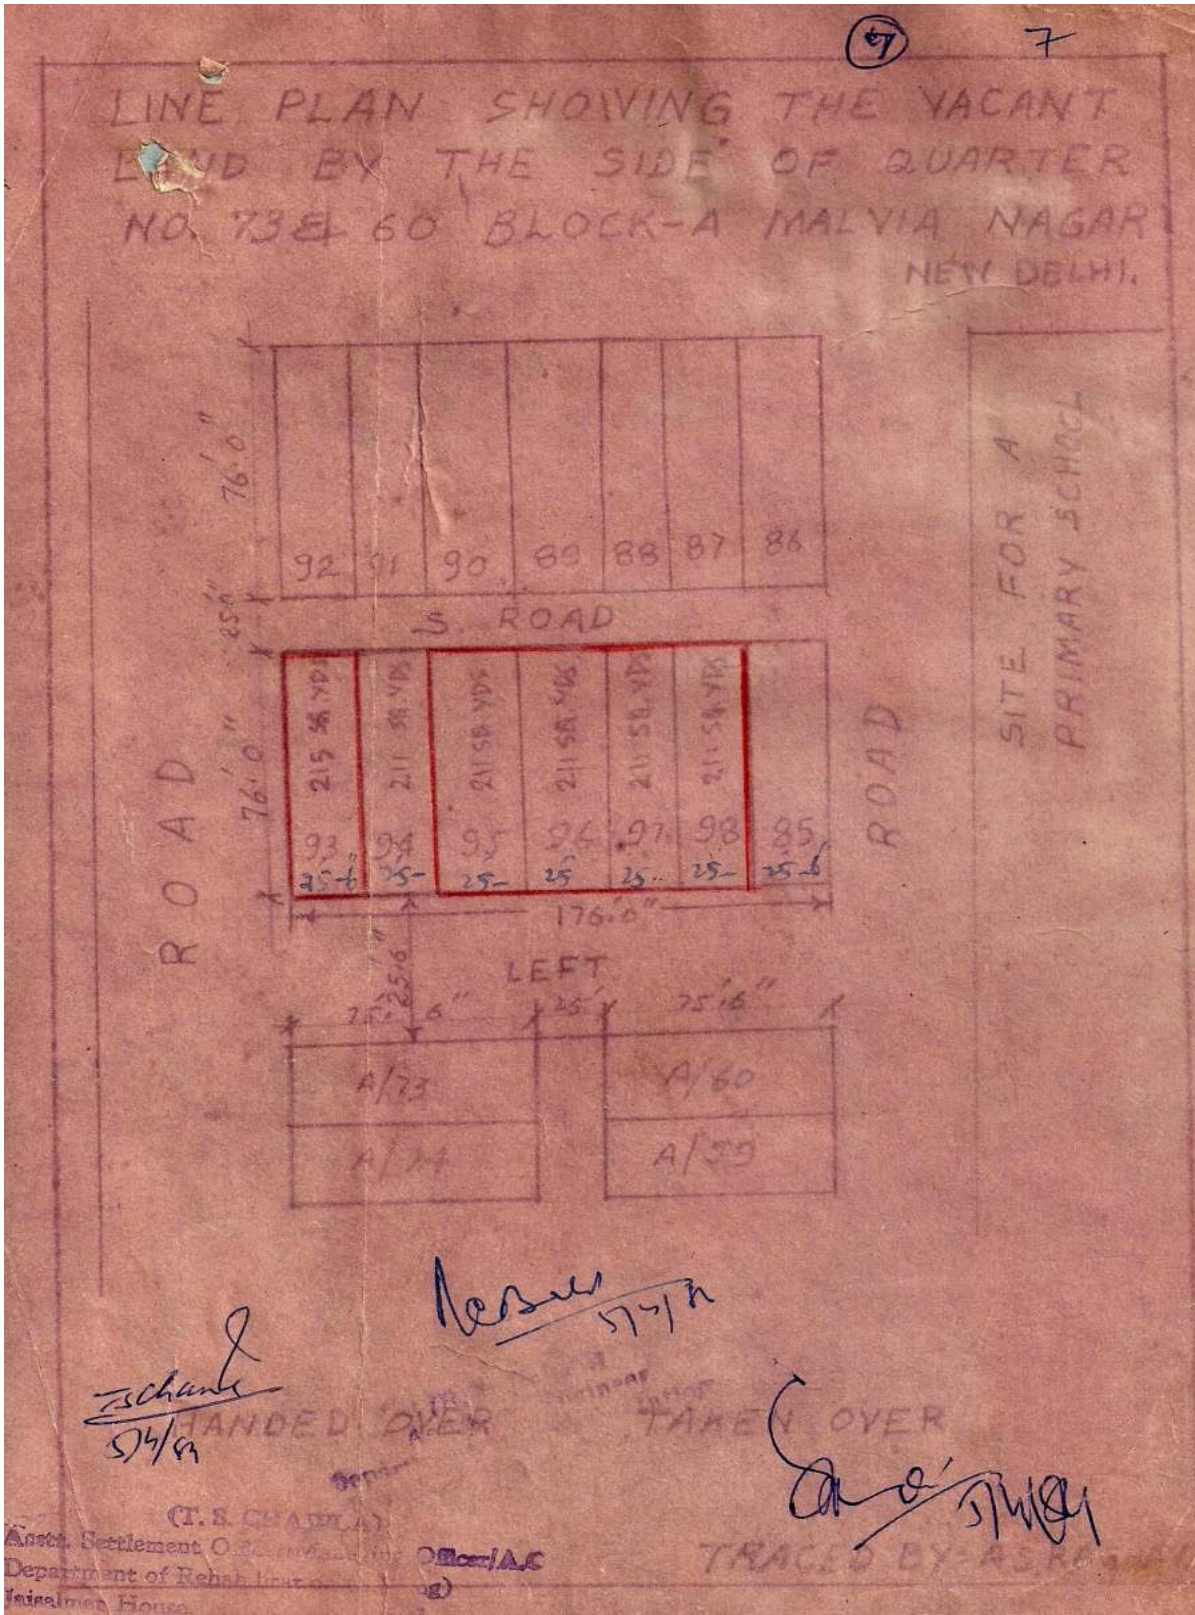 7 7
LINE PLAN SHOWING THE VACANT
LAND BY THE SIDE OF QUARTER
NO. 73 & 60 BLOCK-A MALVIA NAGAR
NEW DELHI.
76'.0"
92 91 90 89 88 87 86
25'.0"
S. ROAD
SITE FOR A
PRIMARY SCHOOL
ROAD
76'.0"
215 SQ. YDS 211 SQ. YDS 211 SQ. YDS 211 SQ. YDS 211 SQ. YDS 211 SQ. YDS
93 94 95 96 97 98 85
25-6 25- 25- 25 25.. 25- 25-6
ROAD
176'.0"
25'.6"
LEFT
75'.6" 25' 75'.6"
A/73 A/60
A/74 A/59
HANDED OVER TAKEN OVER
(T. S. CHAWLA)
Asstt. Settlement Officer/A.C
Department of Rehab
Jaisalmer House
TRACED BY